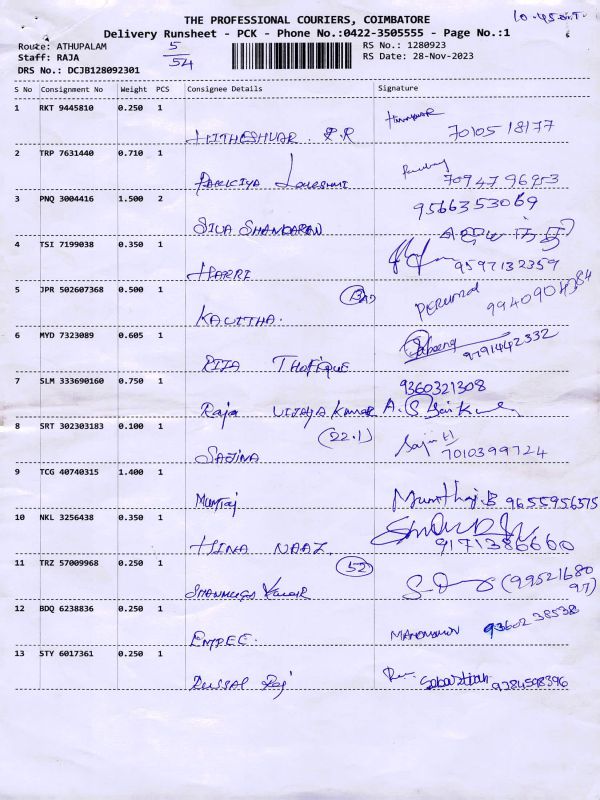 THE PROFESSIONAL COURIERS, COIMBATORE
Delivery Runsheet - PCK - Phone No.:0422-3505555 - Page No.:1
Route: ATHUPALAM 5/54 RS No.: 1280923
Staff: RAJA RS Date: 28-Nov-2023
DRS No.: DCJB128092301
S No Consignment No Weight PCS Consignee Details Signature
1 RKT 9445810 0.250 1
HITHESHVAR . P.R 70105 18177
2 TRP 7631440 0.710 1
70947 96953
3 PNQ 3004416 1.500 2 9566353069
SIVA SHANKARAN
4 TSI 7199038 0.350 1
HARRI 9597132359
5 JPR 502607368 0.500 1
KAVITHA. PERUMAL 9940904384
6 MYD 7323089 0.605 1
RIJA THOFIQUE 9791442332
7 SLM 333690160 0.750 1 9360321308
Raja VIJAYA KUMAR
8 SRT 302303183 0.100 1 (22.1)
SAJINA Sajina H 7010399724
9 TCG 40740315 1.400 1
MUMTAJ Mumthaj.B 9655956575
10 NKL 3256438 0.350 1
HINA NAAZ. 9171386660
11 TRZ 57009968 0.250 1 52
SHANMUGA KUMAR (9952168097)
12 BDQ 6238836 0.250 1
EMPEE. 9360238538
13 STY 6017361 0.250 1
RUSSAL Raj Sabastian 9384598396